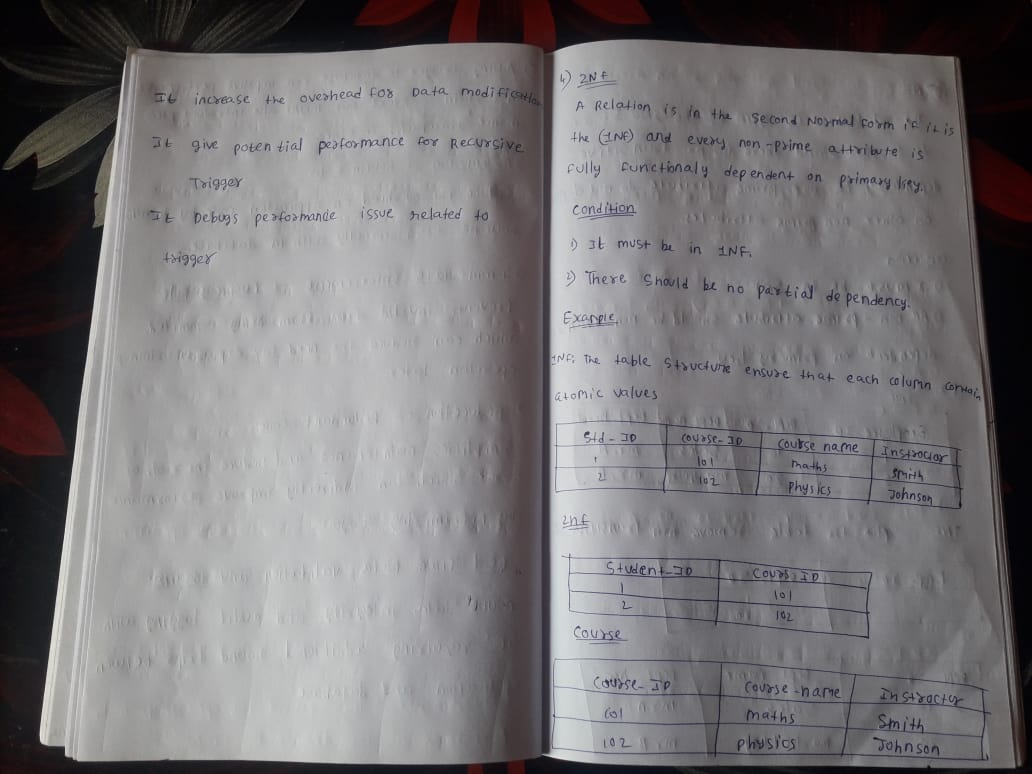 It increase the overhead for Data modification
It give potential performance for Recursive
Trigger
It Debugs performande issue related to
trigger
4) 2NF
A Relation is in the Second Normal form if it is
the (1NF) and every non-prime attribute is
fully functionaly dependent on primary key.
Condition
1) It must be in 1NF.
2) There should be no partial dependency.
Example
1NF: The table Structure ensure that each column contain
atomic values
Std-ID course-ID course name Instructor
1 101 maths Smith
2 102 physics Johnson
2nf
Student-ID Cours ID
1 101
2 102
Course
Course-ID Course-name Instructor
101 maths Smith
102 physics Johnson